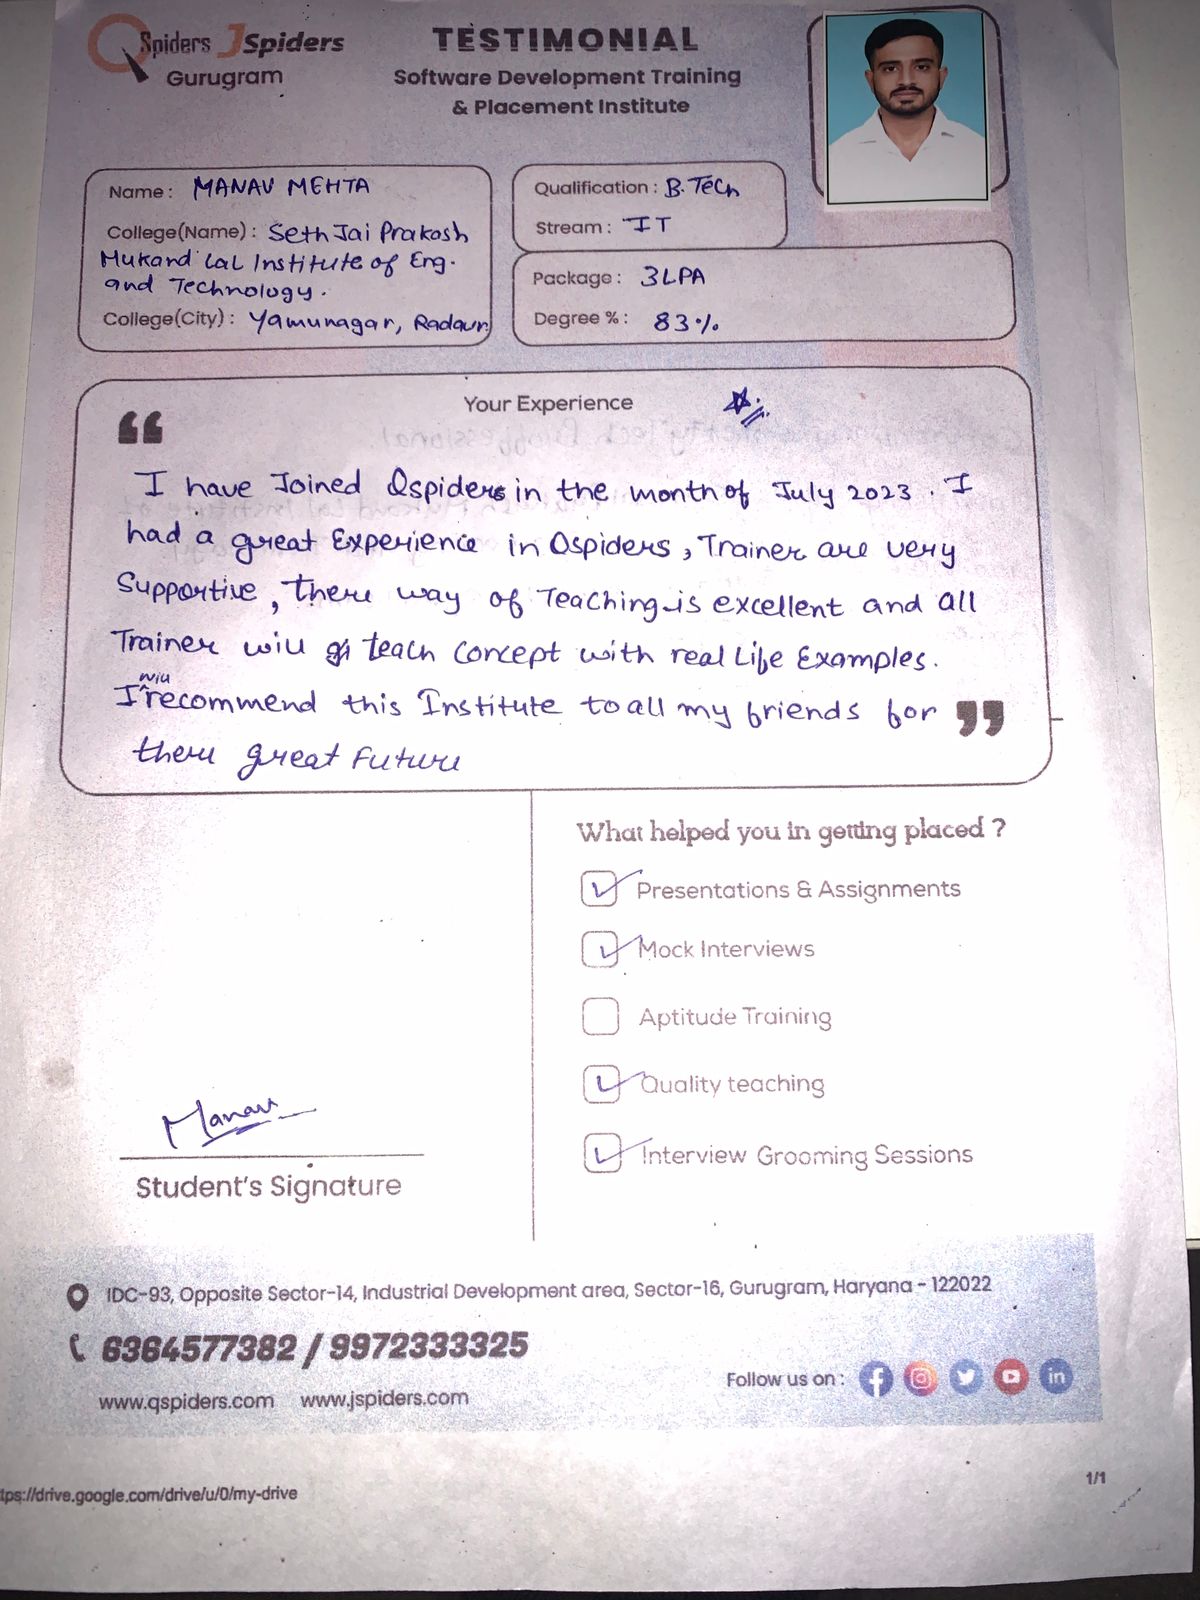 QSpiders JSpiders
Gurugram
TESTIMONIAL
Software Development Training
& Placement Institute
Name : MANAV MEHTA
College(Name) : Seth Jai Prakash
Mukand Lal Institute of Eng.
and Technology.
College(City) : Yamunagar, Radaur
Qualification : B.Tech
Stream : IT
Package : 3LPA
Degree % : 83%
Your Experience
I have Joined Qspiders in the month of July 2023. I
had a great Experience in Qspiders, Trainer are very
Supportive, there way of Teaching is excellent and all
Trainer will teach concept with real Life Examples.
I will recommend this Institute to all my friends for
there great Future
What helped you in getting placed ?
Presentations & Assignments
Mock Interviews
Aptitude Training
Quality teaching
Interview Grooming Sessions
Manav
Student's Signature
IDC-93, Opposite Sector-14, Industrial Development area, Sector-16, Gurugram, Haryana - 122022
6364577382 / 9972333325
www.qspiders.com www.jspiders.com
Follow us on :
tps://drive.google.com/drive/u/0/my-drive
1/1